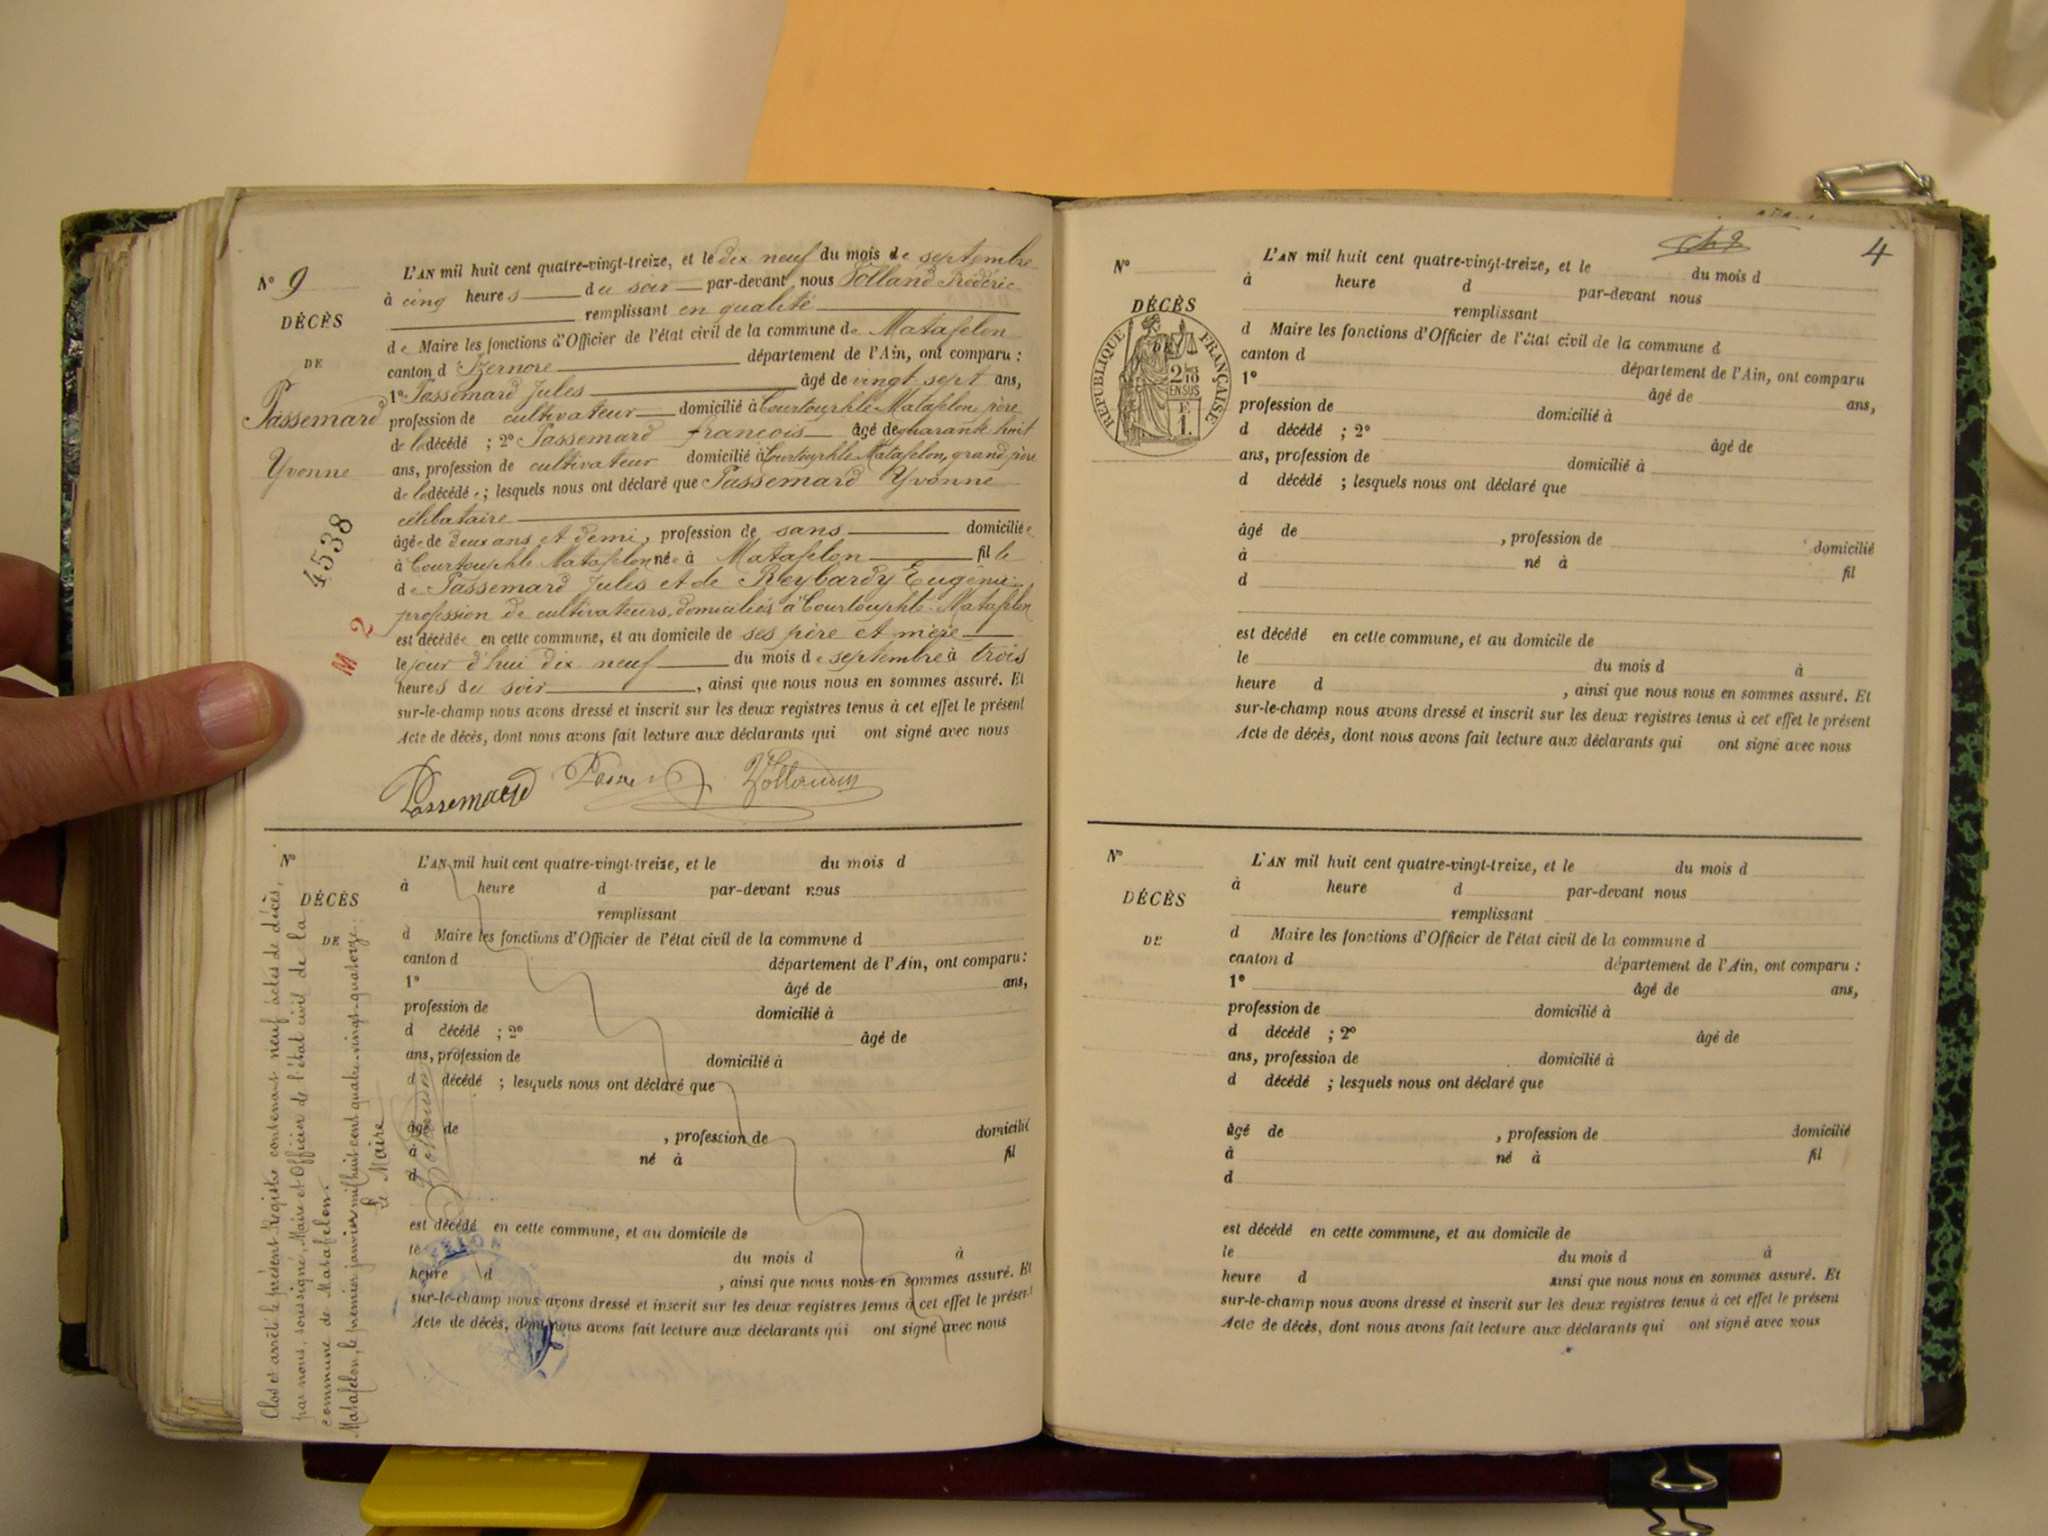 N° 9
DÉCÈS
DE
Passemard
Yvonne
4538
M 2
L'AN mil huit cent quatre-vingt-treize, et le dix neuf du mois de septembre
à cinq heures du soir par-devant nous Volland Frédéric
remplissant en qualité
de Maire les fonctions d'Officier de l'état civil de la commune de Matafelon
canton d'Izernore département de l'Ain, ont comparu :
1° Passemard Jules âgé de vingt sept ans,
profession de cultivateur domicilié à Courtouphle Matafelon, père
de la décédé ; 2° Passemard françois âgé de quarante huit
ans, profession de cultivateur domicilié à Courtouphle Matafelon, grand père
de la décédée ; lesquels nous ont déclaré que Passemard Yvonne
célibataire
âgée de deux ans et demi, profession de sans domiciliée
à Courtouphle Matafelon née à Matafelon fille
de Passemard Jules et de Reybardy Eugénie
profession de cultivateurs, domiciliés à Courtouphle Matafelon
est décédée en cette commune, et au domicile de ses père et mère
le jour d'hui dix neuf du mois de septembre à trois
heures du soir, ainsi que nous nous en sommes assuré. Et
sur-le-champ nous avons dressé et inscrit sur les deux registres tenus à cet effet le présent
Acte de décès, dont nous avons fait lecture aux déclarants qui ont signé avec nous
Passemard Volland
N°
DÉCÈS
DE
L'AN mil huit cent quatre-vingt-treize, et le du mois d
à heure d par-devant nous
remplissant
d Maire les fonctions d'Officier de l'état civil de la commune d
canton d département de l'Ain, ont comparu :
1° âgé de ans,
profession de domicilié à
d décédé ; 2° âgé de
ans, profession de domicilié à
d décédé ; lesquels nous ont déclaré que
âgé de , profession de domicilié
à né à fil
d
est décédé en cette commune, et au domicile de
le du mois d à
heure d , ainsi que nous nous en sommes assuré. Et
sur-le-champ nous avons dressé et inscrit sur les deux registres tenus à cet effet le présent
Acte de décès, dont nous avons fait lecture aux déclarants qui ont signé avec nous
Clos et arrêté le présent Registre contenant neuf actes de décès,
par nous, soussigné, Maire et Officier de l'état civil de la
commune de Matafelon.
Matafelon, le premier janvier mil huit cent quatre-vingt-quatorze.
Le Maire
Volland
4
N°
DÉCÈS
RÉPUBLIQUE FRANÇAISE
2/10 EN SUS
E
1.
L'AN mil huit cent quatre-vingt-treize, et le du mois d
à heure d par-devant nous
remplissant
d Maire les fonctions d'Officier de l'état civil de la commune d
canton d département de l'Ain, ont comparu
1° âgé de ans,
profession de domicilié à
d décédé ; 2° âgé de
ans, profession de domicilié à
d décédé ; lesquels nous ont déclaré que
âgé de , profession de domicilié
à né à fil
d
est décédé en cette commune, et au domicile de
le du mois d à
heure d , ainsi que nous nous en sommes assuré. Et
sur-le-champ nous avons dressé et inscrit sur les deux registres tenus à cet effet le présent
Acte de décès, dont nous avons fait lecture aux déclarants qui ont signé avec nous
N°
DÉCÈS
DE
L'AN mil huit cent quatre-vingt-treize, et le du mois d
à heure d par-devant nous
remplissant
d Maire les fonctions d'Officier de l'état civil de la commune d
canton d département de l'Ain, ont comparu :
1° âgé de ans,
profession de domicilié à
d décédé ; 2° âgé de
ans, profession de domicilié à
d décédé ; lesquels nous ont déclaré que
âgé de , profession de domicilié
à né à fil
d
est décédé en cette commune, et au domicile de
le du mois d à
heure d ainsi que nous nous en sommes assuré. Et
sur-le-champ nous avons dressé et inscrit sur les deux registres tenus à cet effet le présent
Acte de décès, dont nous avons fait lecture aux déclarants qui ont signé avec nous